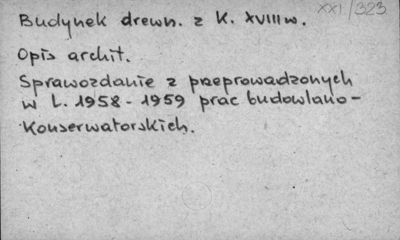 XXI/323
Budynek drewn. z K. XVIII w.
Opis archit.
Sprawozdanie z przeprowadzonych
w L. 1958 - 1959 prac budowlano -
Konserwatorskich.